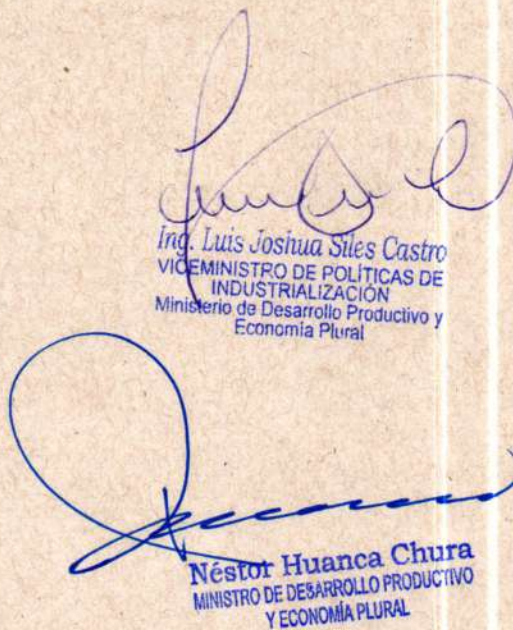 Ing. Luis Joshua Siles Castro
VICEMINISTRO DE POLÍTICAS DE
INDUSTRIALIZACIÓN
Ministerio de Desarrollo Productivo y
Economía Plural
Néstor Huanca Chura
MINISTRO DE DESARROLLO PRODUCTIVO
Y ECONOMÍA PLURAL